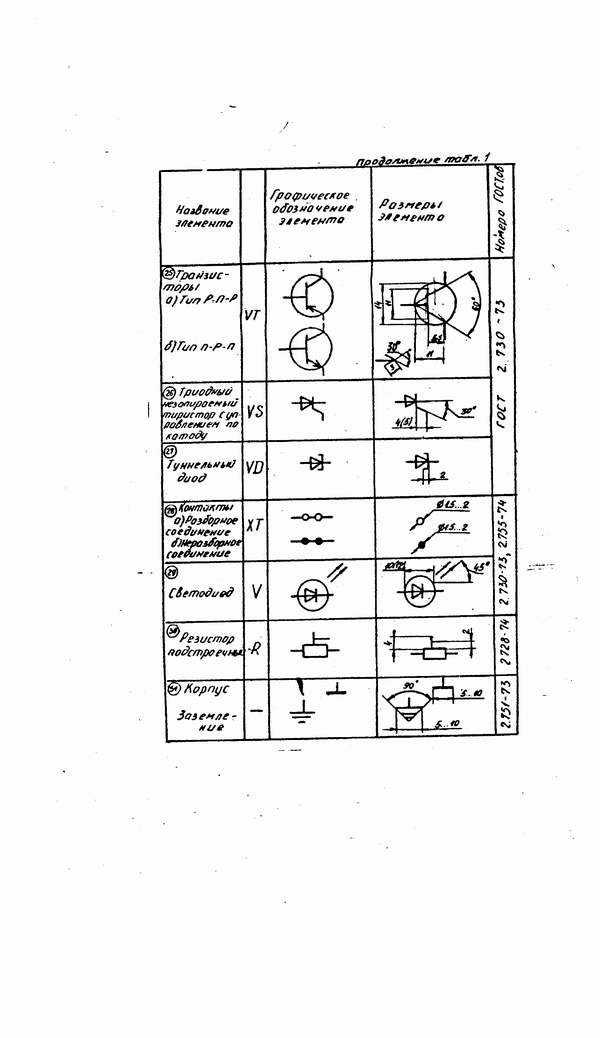 Продолжение табл. 1
Название
элемента
Графическое
обозначение
элемента
Размеры
элемента
Номера ГОСТов
25 Транзис-
торы
а) Тип Р-П-Р
б) Тип п-Р-п
VT
14
11
60°
30°
3
11
ГОСТ 2.730-73
26 Триодный
незапираемый
тиристор с уп-
равлением по
катоду
VS
4(5)
30°
27
Туннельный
диод
VD
2
28 Контакты
а) Разборное
соединение
б) Неразборное
соединение
XT
Ø1.5...2
Ø1.5...2
29
Светодиод
V
45°
2.730-73, 2.755-74
30 Резистор
подстроечный
R
4
2
2.728-74
31 Корпус
Заземле-
ние
—
90°
5...10
5...10
2.751-73